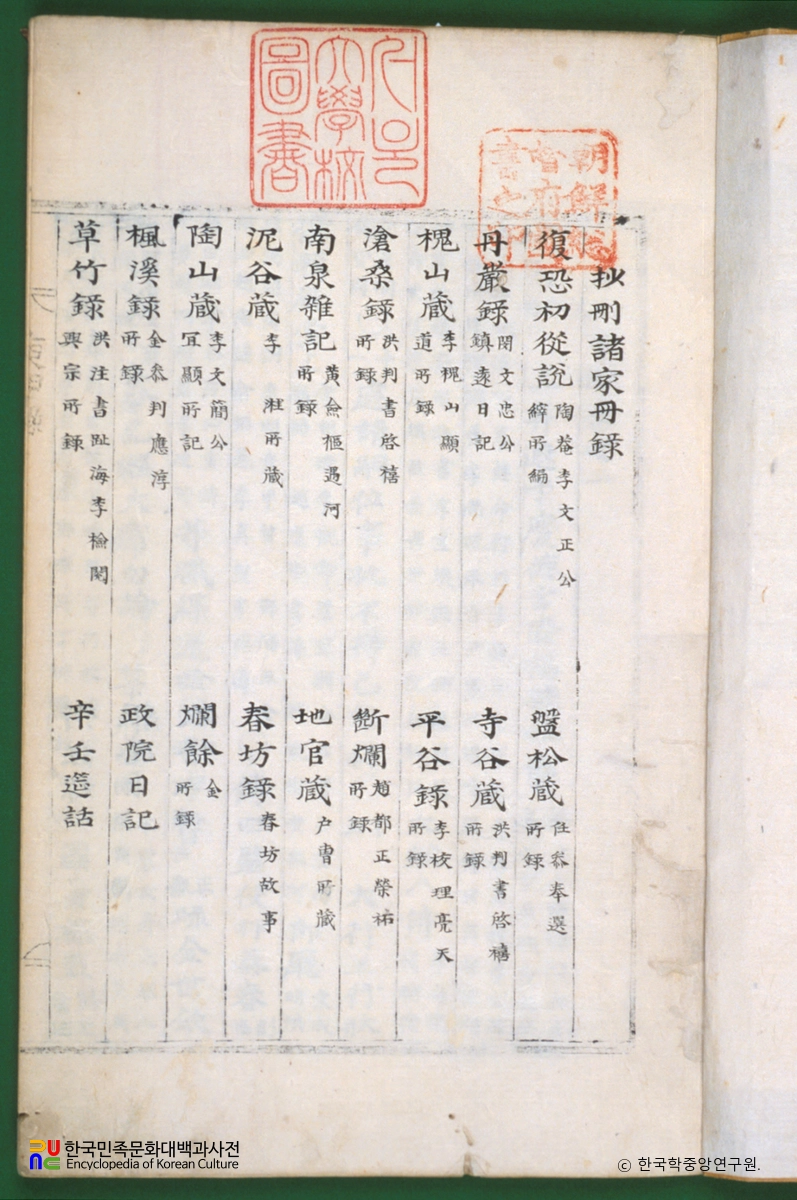 서울大學校圖書
朝鮮總督府圖書之印
抄刪諸家冊錄
復恐初從說 陶菴李文正公縡所編 盤松蔵 任叅奉選所錄
丹巖錄 閔文忠公鎮遠日記 寺谷蔵 洪判書啓禧所錄
槐山蔵 李槐山顯道所錄 平谷錄 李校理亮天所錄
滄桑錄 洪判書啓禧所錄 斷爛 趙都正榮祏所錄
南泉雜記 黃僉樞遇河所錄 地官蔵 户曺所蔵
泥谷蔵 李 所蔵 春坊錄 春坊故事
陶山蔵 李文簡公宜顯所記 爛餘 金 所錄
楓溪錄 金叅判應淳所錄 政院日記
草竹錄 洪注書趾海李檢閱興宗所錄 辛壬 話
한국민족문화대백과사전
Encyclopedia of Korean Culture
© 한국학중앙연구원.